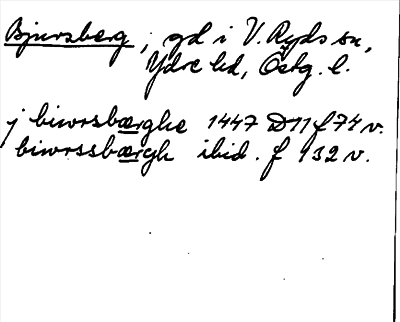 Bjursberg, gd i V. Ryds sn,
Ydre hd, Östg. l.
j biwrsbærghe 1447 D11 f 74 v.
biwrssbærgh ibid. f 132 v.